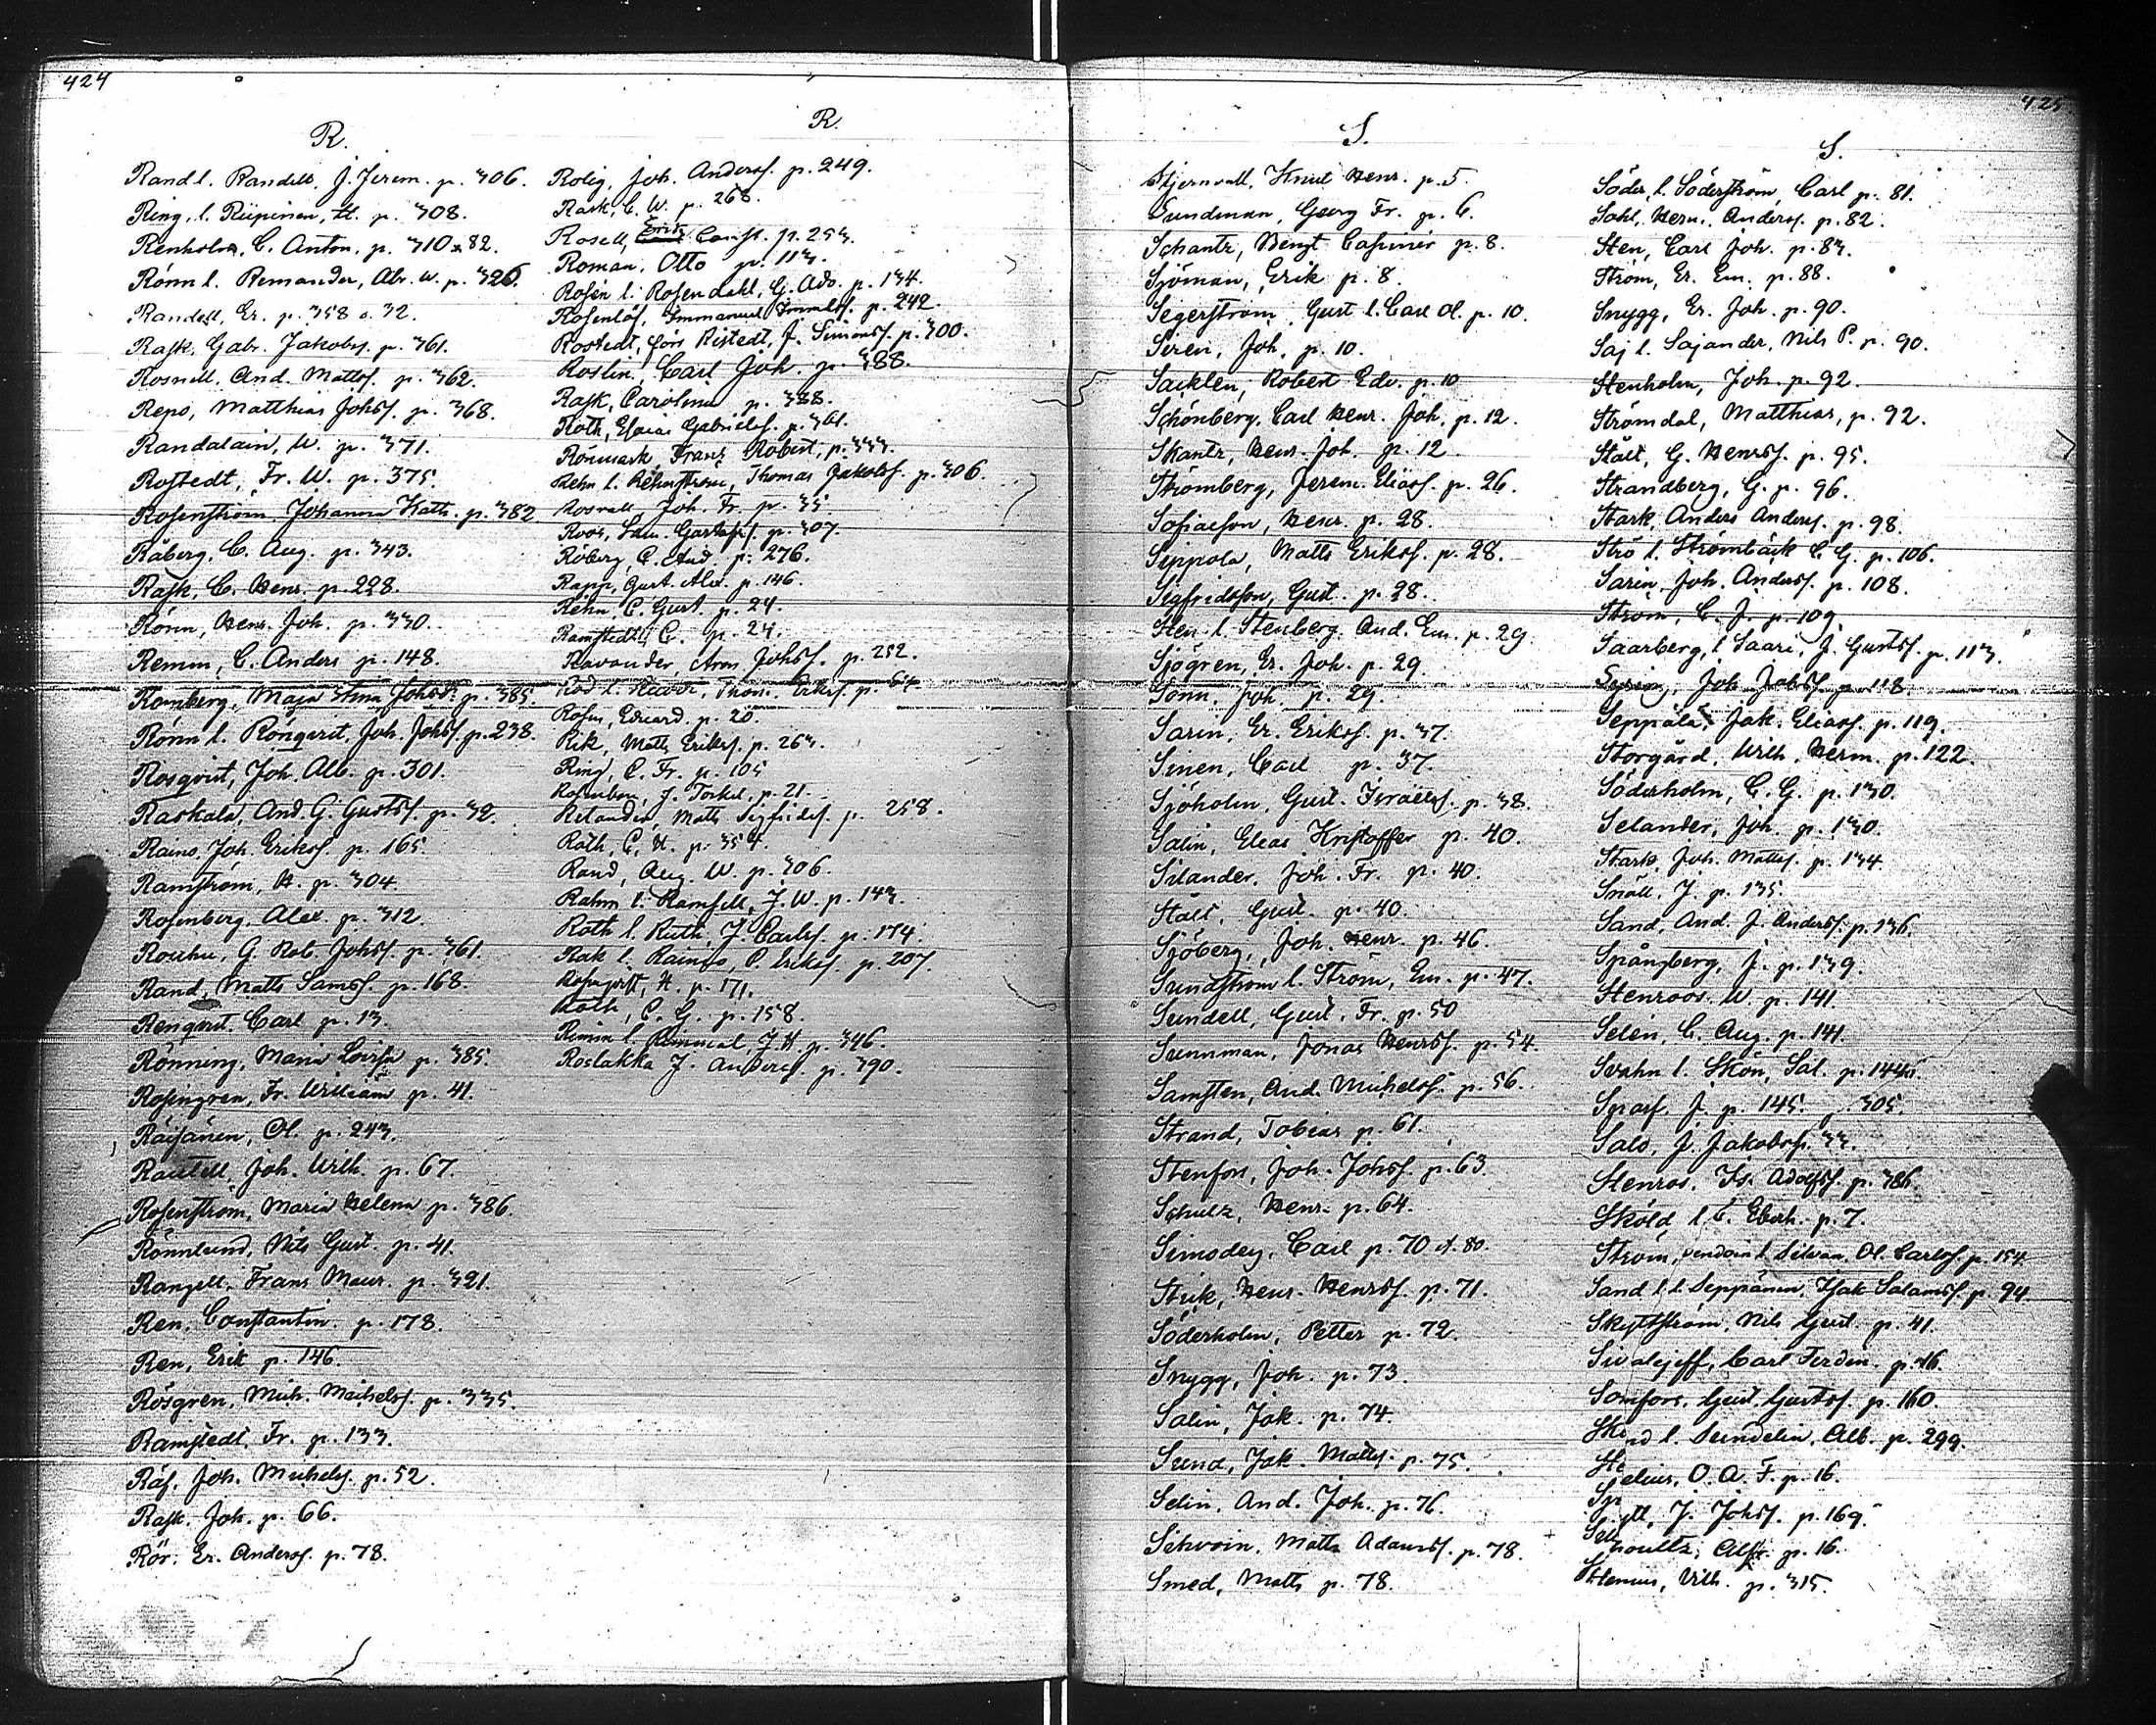 424
R.
Rand l. Randell, J. Jerem. p. 306.
Ring, l. Riipinen, H. p. 308.
Renholm, C. Anton, p. 310 x 82.
Rönn l. Remander, Abr. W. p. 326.
Randell, Er. p. 358 o. 32.
Rask, Gabr. Jakobs. p. 361.
Rosnell, And. Mattss. p. 362.
Repo, Matthias Johss. p. 368.
Randalain, W. p. 371.
Rostedt, Fr. W. p. 375.
Rosenström, Johanna Kath. p. 382
Råberg, C. Aug. p. 343.
Rask, C. Henr. p. 228.
Rönn, Henr. Joh. p. 330.
Remm, C. Anders p. 148.
Romberg, Maja Stina Johsdr. p. 385.
Rönn l. Rönqvist, Joh. Johss. p. 238.
Rosqvist, Joh. Alb. p. 301.
Raskala, And. G. Gustss. p. 32.
Raino, Joh. Erikss. p. 165.
Ramström, H. p. 304.
Rosenberg, Alex. p. 312
Rouhu, G. Rob. Johss. p. 361.
Rand, Matts Samss. p. 168.
Renqvist, Carl p. 13.
Rönning, Maria Lovisa p. 385.
Rosengren, Fr. William p. 41.
Räisänen, Ol. p. 243.
Rautell, Joh. Wilh. p. 67.
Rosenström, Maria Helena p. 386.
Rönnlund, Nils Gust. p. 41.
Rangell, Frans Maur. p. 321.
Ren, Constantin. p. 178.
Ren, Erik p. 146.
Rosgren, Mich. Michelss. p. 335.
Ramstedt, Fr. p. 133.
Räf, Joh. Michels. p. 52.
Rask, Joh. p. 66.
Rör, Er. Anderss. p. 78.
R.
Rolig, Joh. Anderss. p. 249.
Rask, C. W. p. 268.
Rosell, Const. p. 253.
Roman, Otto p. 113.
Rosén l. Rosendahl, G. Ado. p. 134.
Rosenlöf, Immanuel p. 242.
Rostedt, förr Ristedt, J. Simonss. p. 300.
Roslin, Carl Joh. p. 388.
Rask, Carolina p. 388.
Roth, Esaias Gabrielss. p. 361.
Rönmark Frans Robert, p. 333.
Rehn l. Rehnström, Thomas Jakobss. p. 306.
Rosvall, Joh. Fr. p. 35.
Roos, Sam. Gustafss. p. 307.
Råberg, C. And. p. 276.
Rapp, Gust. Alex. p. 146.
Rehn, C. Gust. p. 24.
Ramstedt, C. p. 24.
Ravander, Aron Johss. p. 252.
Röd l. Thom. Erikss. p. 64.
Rosen, Eduard. p. 20.
Rik, Matts Erikss. p. 263.
Ring, C. Fr. p. 105
J. Torkel, p. 21.
Relander, Matts Sigfridss. p. 258.
Roth, C. H. p. 354.
Rand, Aug. W. p. 306.
Rahm l. Ramsell, J. W. p. 143.
Roth l. Ruth J. Carlss. p. 174.
Rak l. Rainio, P. Erikss. p. 207.
Rosqvist, H. p. 171.
Roth, C. G. p. 158.
Rimin l. J. H. p. 346.
Roslakka J. Anderss. p. 390.
425
S.
Stjernvall, Knut Henr. p. 5.
Sundman, Georg Fr. p. 6.
Schantz, Bengt Casimir p. 8.
Sjöman, Erik p. 8.
Segerström, Gust l. Carl Ol. p. 10.
Seren, Joh. p. 10.
Sacklén, Robert Edv. p. 10
Schönberg, Carl Henr. Joh. p. 12.
Skantz, Henr. Joh. p. 12.
Strömberg, Jerem. Eliass. p. 26.
Sofiaeson, Henr. p. 28.
Sippola, Matts Erikss. p. 28.
Sigfridsson, Gust. p. 28.
Sten l. Stenberg, And. Em. p. 29
Sjögren, Er. Joh. p. 29
Sönn, Joh. p. 29.
Sarin, Er. Erikss. p. 37.
Sinen, Carl p. 37.
Sjöholm, Gust. Israelss. p. 38.
Salin, Elias Kristoffer p. 40.
Silander, Joh. Fr. p. 40.
Stålt, Gust. p. 40.
Sjöberg, Joh. Henr. p. 46.
Sundström l. Ström, Em. p. 47.
Sundell, Gust. Fr. p. 50
Sunnman, Jonas Henrss. p. 54.
Samsten, And. Michelss. p. 56.
Strand, Tobias p. 61.
Stenfors, Joh. Johss. p. 63.
Schulz, Henr. p. 64.
Simodey, Carl p. 70 o. 80.
Stick, Henr. Henrss. p. 71.
Söderholm, Petter p. 72.
Snygg, Joh. p. 73.
Salin, Jak. p. 74.
Sund, Jak. Mattss. p. 75.
Selin, And. Joh. p. 76.
Sihvoin, Matts Adamss. p. 78.
Smed, Matts p. 78.
S.
Söder, l. Söderström, Carl p. 81.
Sahl, Herm. Anderss. p. 82.
Sten, Carl Joh. p. 83.
Ström, Er. Em. p. 88.
Snygg, Er. Joh. p. 90.
Saj l. Sajander, Nils P. p. 90.
Stenholm, Joh. p. 92.
Strömdal, Matthias, p. 92.
Stålt, G. Henrss. p. 95.
Strandberg, G. p. 96.
Stark, Anders Anderss. p. 98.
Strö l. Strömbäck C. G. p. 106.
Sarin, Joh. Anderss. p. 108.
Ström, C. J. p. 109.
Saarberg, l. Saari, J. Gustss. p. 113.
Joh. Johss. p. 118
Seppälä, Jak. Eliass. p. 119.
Storgård, Wilh. Herm. p. 122.
Söderholm, C. G. p. 130.
Selander, Joh. p. 130.
Stark, Joh. Mattss. p. 134.
Snäll, J. p. 135
Sand, And. J. Anderss. p. 136.
Spångberg, J. p. 139.
Stenroos, W. p. 141.
Selén, C. Aug. p. 141.
Svahn l. Skön, Sal. p. 144.
Sparf, J. p. 145. p. 305.
Salo, J. Jakobss. 33.
Stenros, Is. Adolfss. p. 386.
Sköld l. C. Eberh. p. 7.
Ström, l. Silvan, Ol. Carlss. p. 154.
Sand l. l. Seppänen, Isak Salamss. p. 94
Skyttström, Nils Gust. p. 41.
Sivalejeff, Carl Ferdin. p. 16.
Somfors, Gust. Gustss. p. 160.
l. Sundelin, Alb. p. 299.
O. A. F. p. 16.
J. Johss. p. 169.
p. 16.
Stenius, Vilh. p. 315.